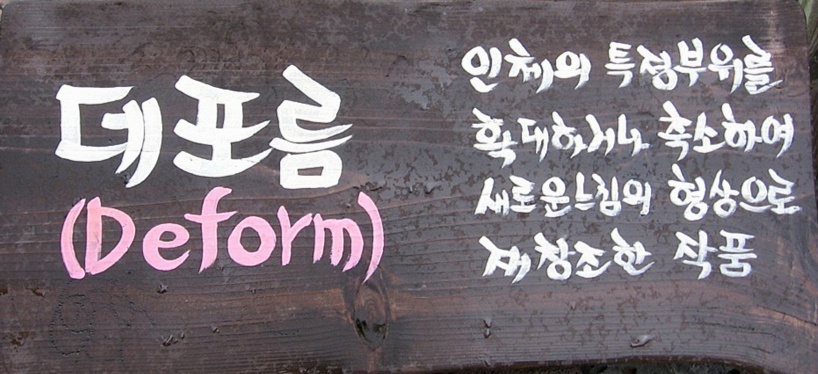 데포름
(Deform)
인체의 특정부위를
확대하거나 축소하여
새로운느낌의 형상으로
재창조한 작품